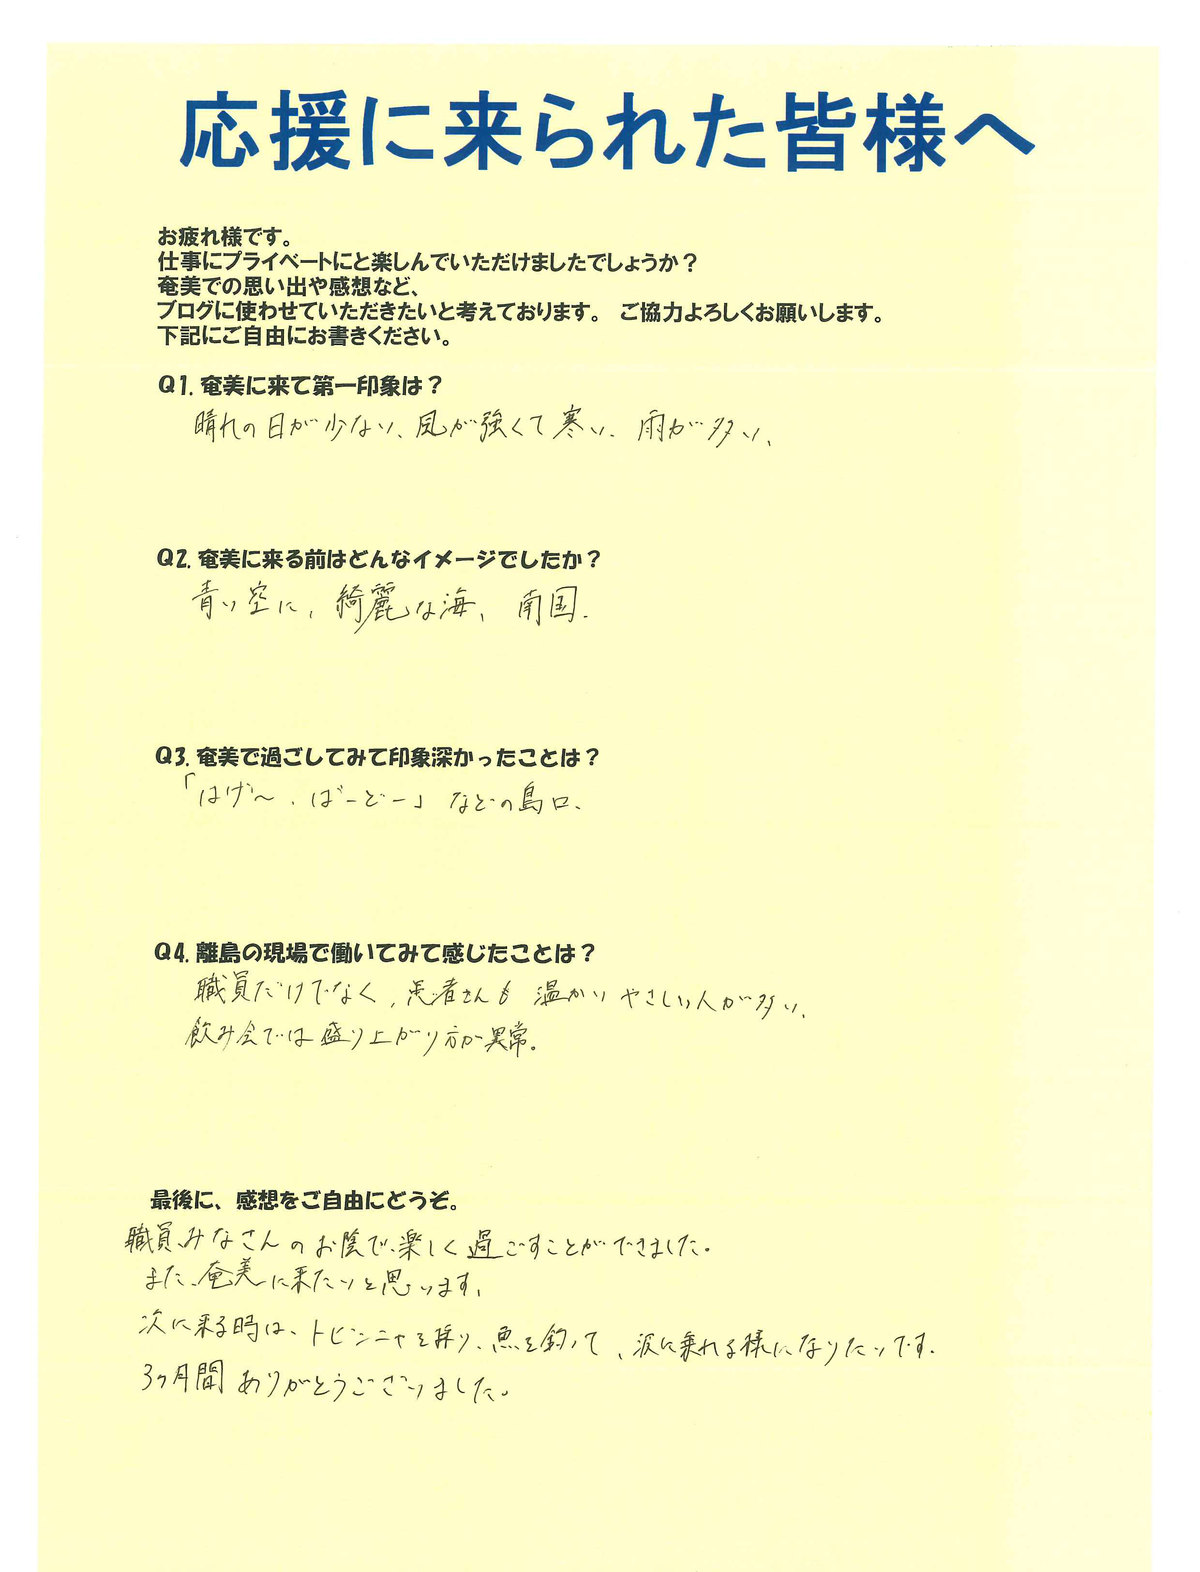 応援に来られた皆様へ
お疲れ様です。
仕事にプライベートにと楽しんでいただけましたでしょうか?
奄美での思い出や感想など、
ブログに使わせていただきたいと考えております。 ご協力よろしくお願いします。
下記にご自由にお書きください。
Q1. 奄美に来て第一印象は?
晴れの日が少ない、風が強くて寒い、雨が多い、
Q2. 奄美に来る前はどんなイメージでしたか?
青い空に、綺麗な海、南国.
Q3. 奄美で過ごしてみて印象深かったことは?
「はげ〜、ばーどー」などの島口、
Q4. 離島の現場で働いてみて感じたことは?
職員だけでなく、患者さんも温かいやさしい人が多い、
飲み会では盛り上がり方が異常。
最後に、感想をご自由にどうぞ。
職員みなさんのお陰で、楽しく過ごすことができました。
また、奄美に来たいと思います、
次に来る時は、トビンニャを採り、魚を釣って、波に乗れる様になりたいです.
3ヶ月間ありがとうございました。